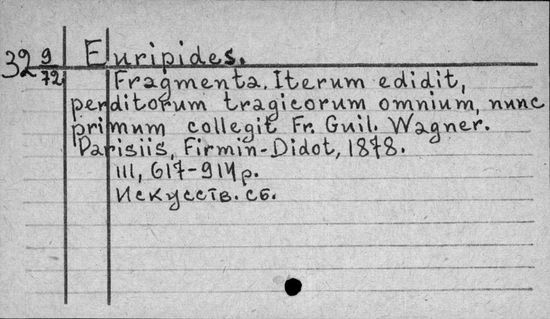 Euripides.
32 9/72
Fragmenta. Iterum edidit,
perditorum tragicorum omnium, nunc
primum collegit Fr. Guil. Wagner.
Parisiis, Firmin-Didot, 1878.
III, 617-914 p.
Искусств. сб.